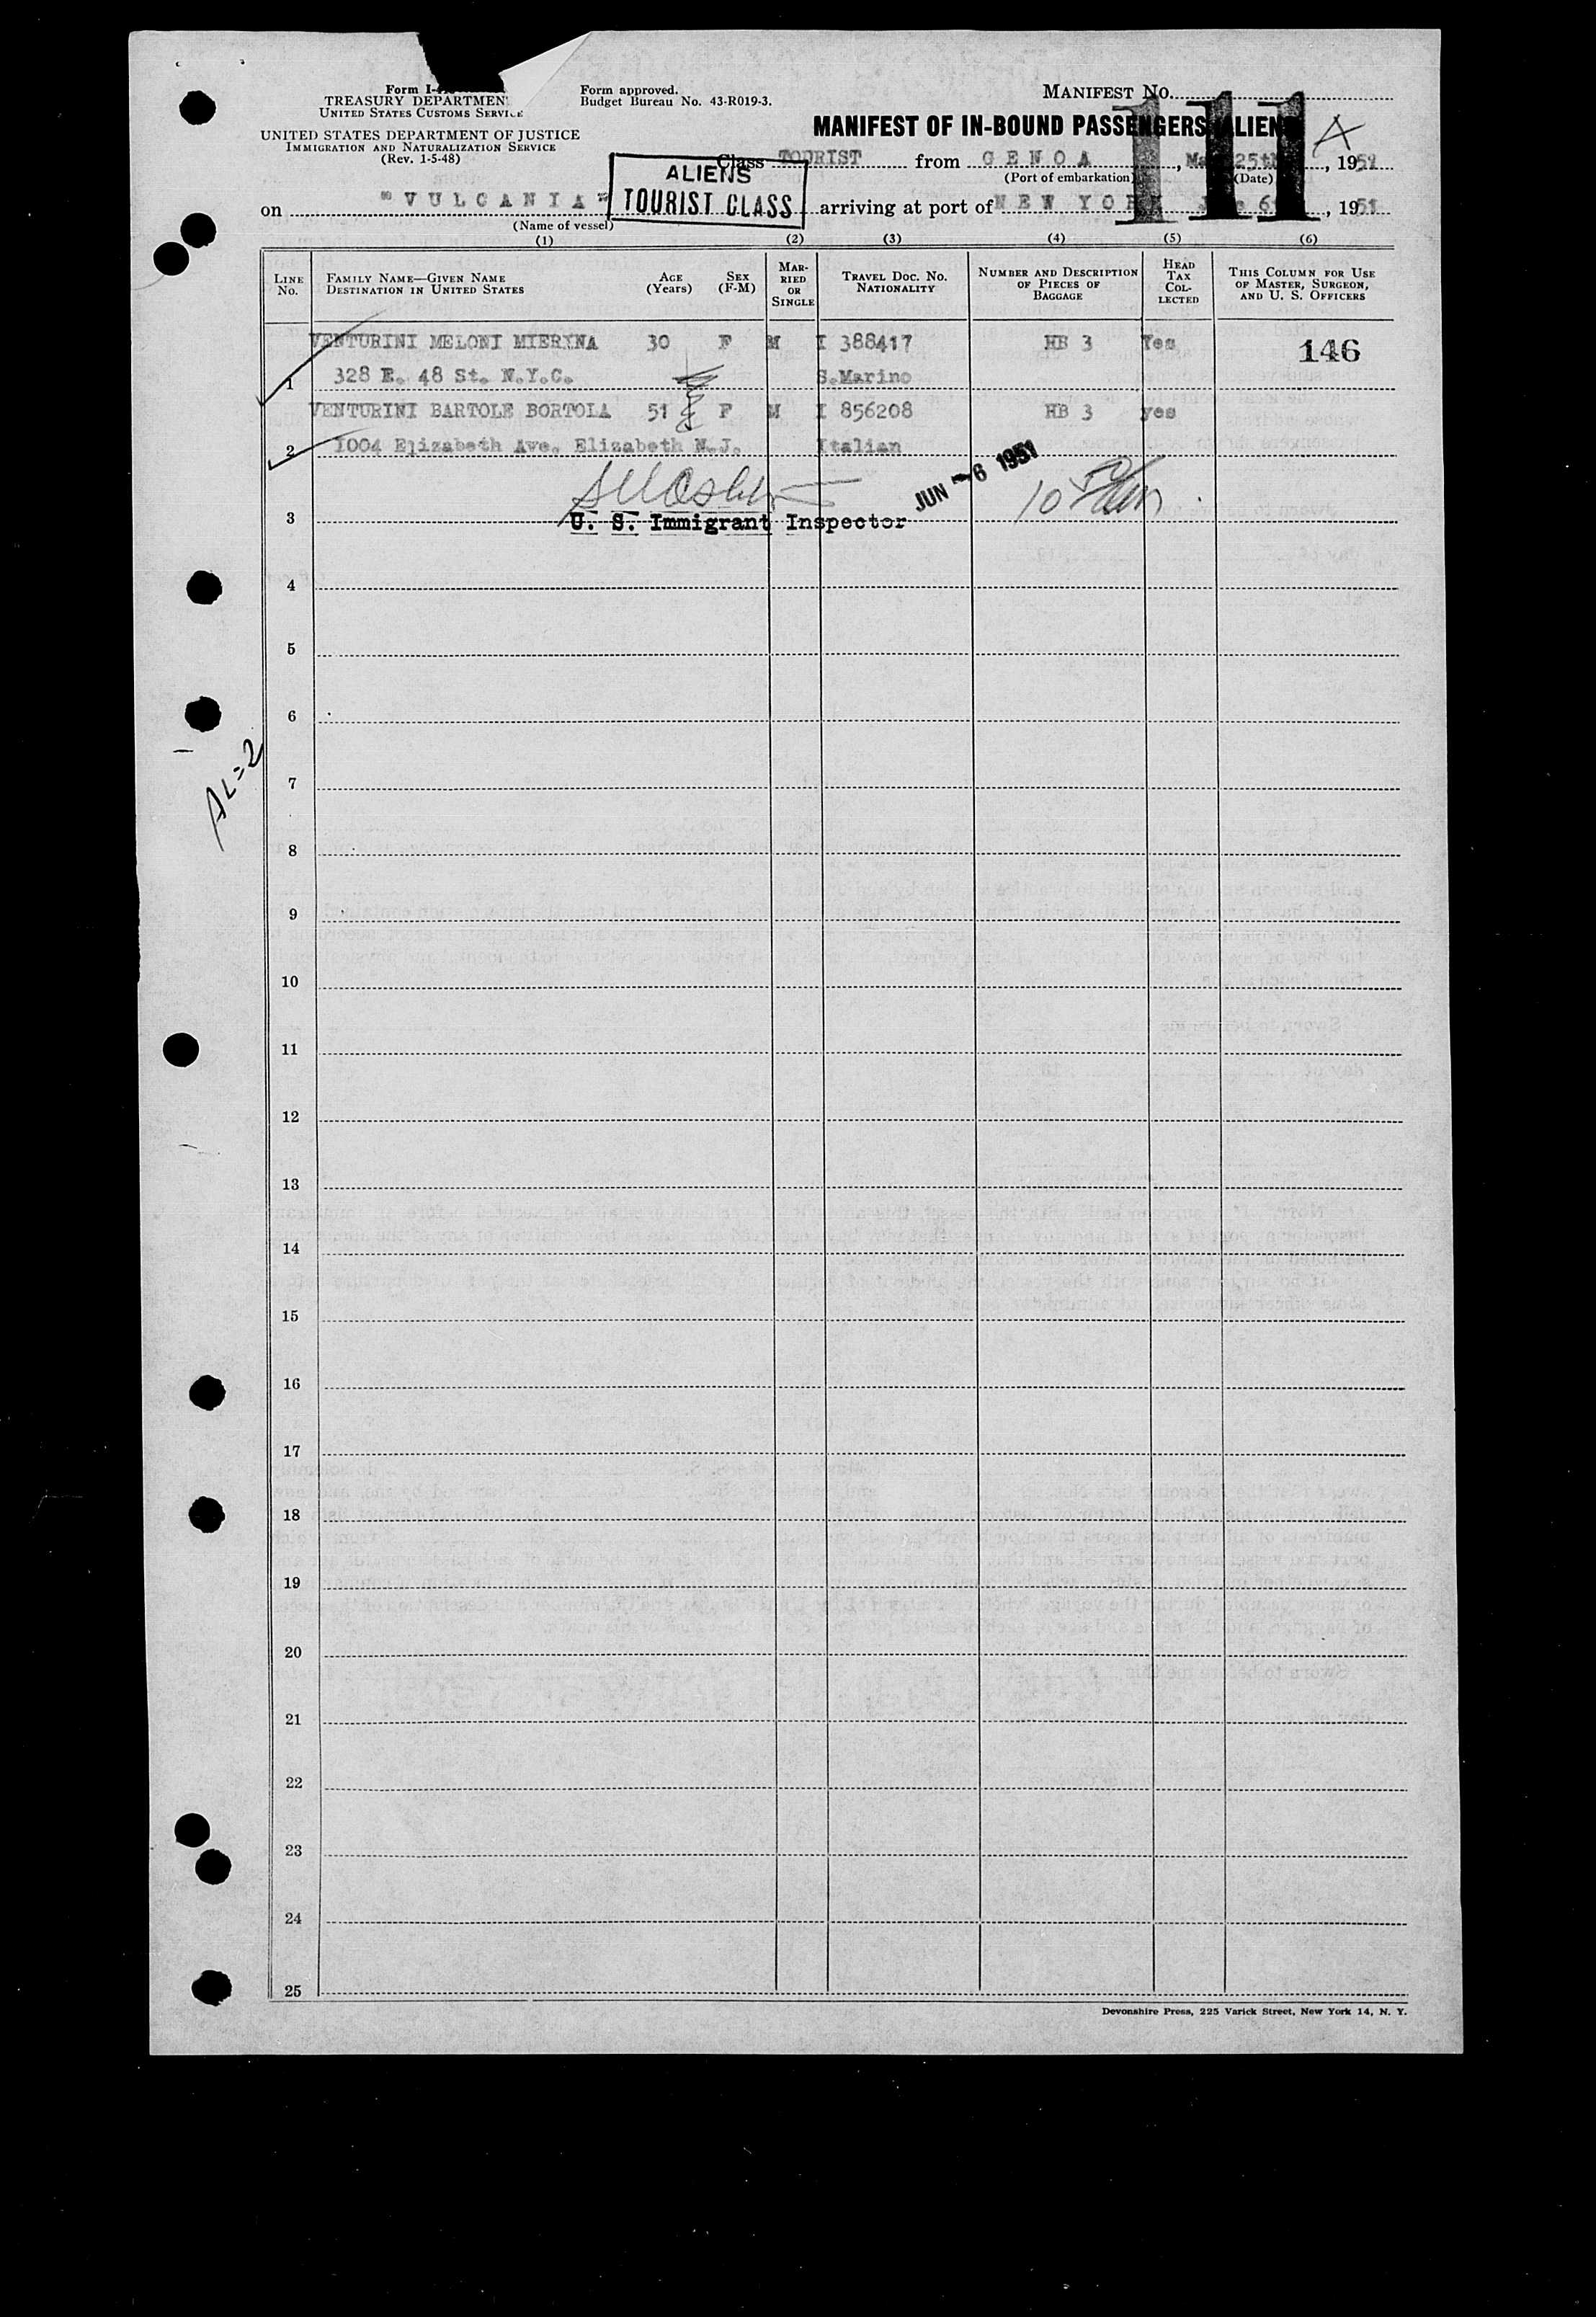 Form I-
TREASURY DEPARTMENT
UNITED STATES CUSTOMS SERVICE
UNITED STATES DEPARTMENT OF JUSTICE
IMMIGRATION AND NATURALIZATION SERVICE
(Rev. 1-5-48)
Form approved.
Budget Bureau No. 43-R019-3.
MANIFEST No.
111
MANIFEST OF IN-BOUND PASSENGERS (ALIENS) A
Class TOURIST from GENOA, May 25th, 1951
(Port of embarkation) (Date)
ALIENS
TOURIST CLASS
on "VULCANIA" arriving at port of NEW YORK June 6th, 1951
(Name of vessel)
(1) (2) (3) (4) (5) (6)
LINE No.
FAMILY NAME—GIVEN NAME
DESTINATION IN UNITED STATES
AGE (Years)
SEX (F-M)
MARRIED OR SINGLE
TRAVEL DOC. No.
NATIONALITY
NUMBER AND DESCRIPTION OF PIECES OF BAGGAGE
HEAD TAX COLLECTED
THIS COLUMN FOR USE OF MASTER, SURGEON, AND U. S. OFFICERS
VENTURINI MELONI MIERINA 30 F M I 388417 HB 3 Yes 146
1 328 E. 48 St. N.Y.C. S.Marino
VENTURINI BARTOLE BORTOLA 51 F M I 856208 HB 3 yes
2 1004 Elizabeth Ave. Elizabeth N.J. Italian
JUN -6 1951
10
3 U. S. Immigrant Inspector
4
5
6
AL=2
7
8
9
10
11
12
13
14
15
16
17
18
19
20
21
22
23
24
25
Devonshire Press, 225 Varick Street, New York 14, N. Y.